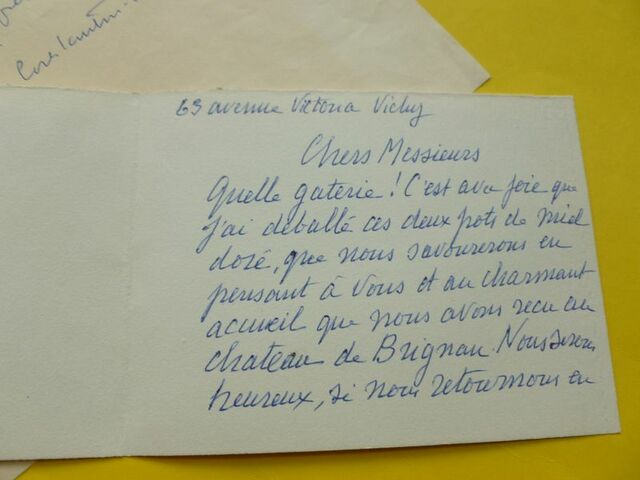 Constantin
63 avenue Victoria Vichy
Chers Messieurs
Quelle gaterie! C'est avec joie que
j'ai déballé ces deux pots de miel
doré, que nous savourerons en
pensant à vous et au charmant
accueil que nous avons recu au
chateau de Brignan. Nous serons
heureux, si nous retournons en